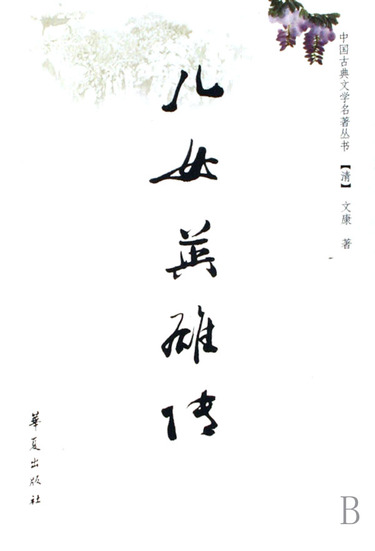 中国古典文学名著丛书【清】文康 著
儿女英雄传
華夏出版社
B